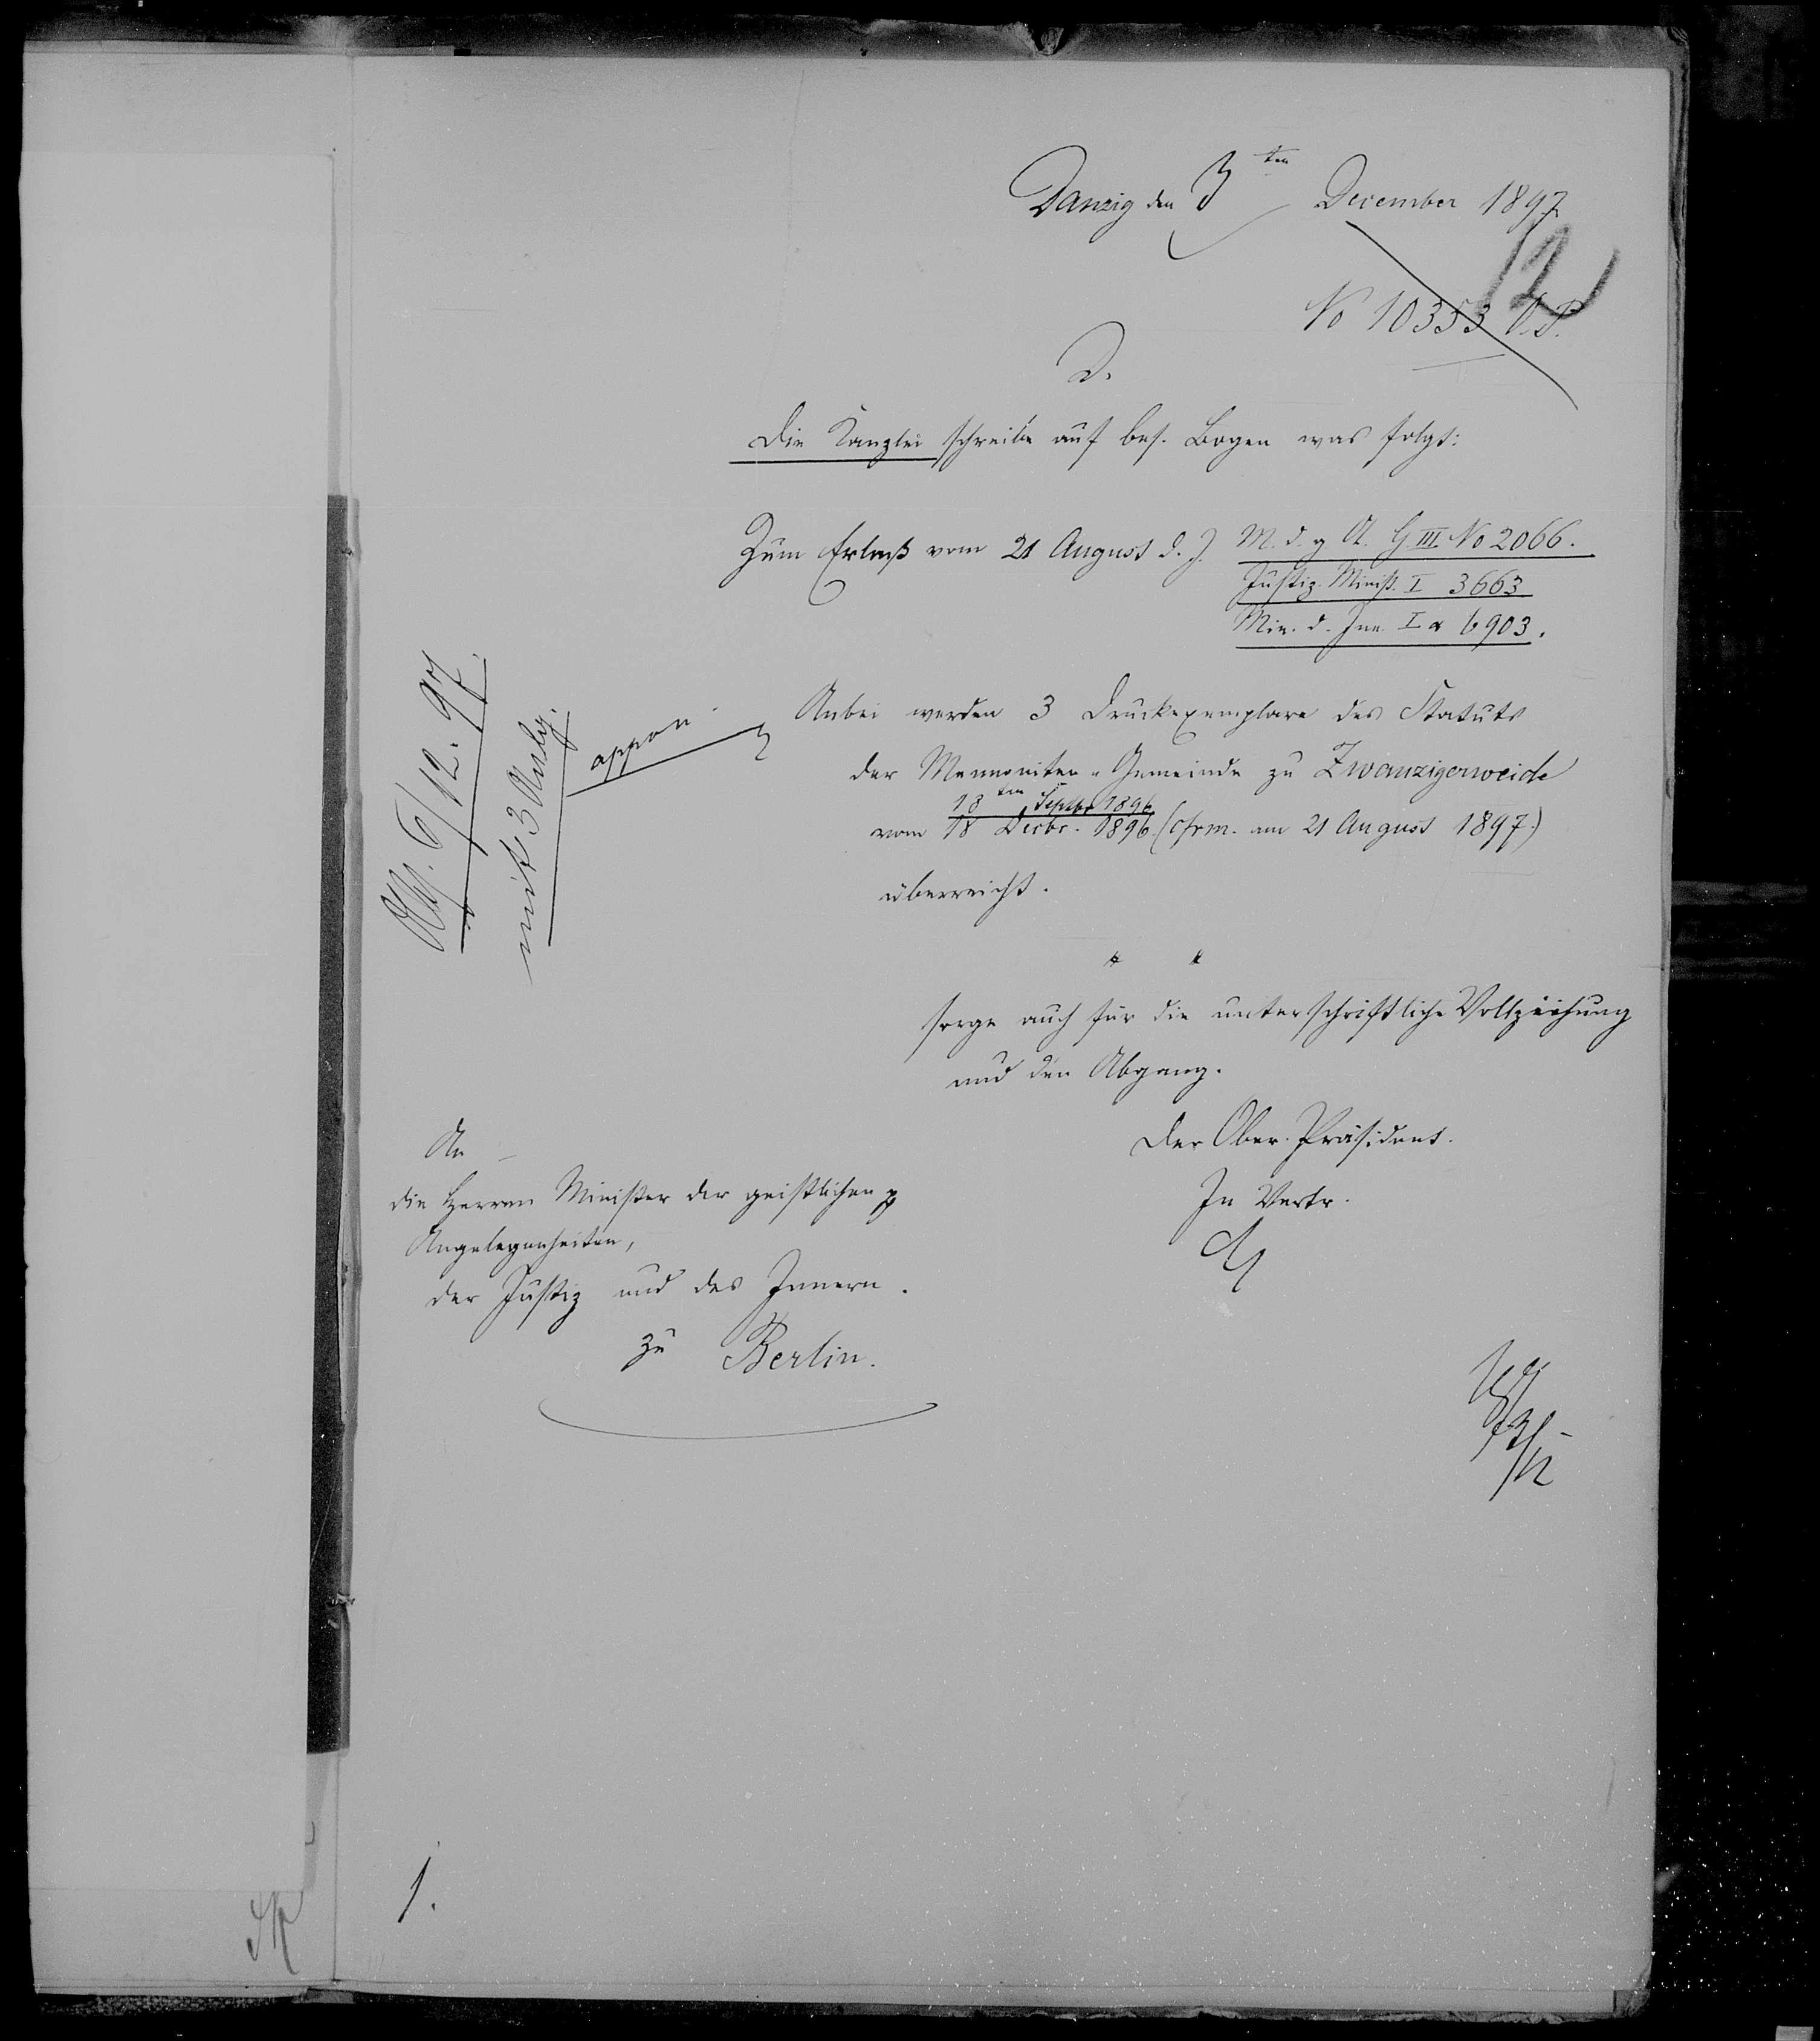 Danzig den 3ten December 1897
12
No 10353 O.P.
D.
Die Kanzlei schreibe auf bes. Bogen was folgt:
Zum Erlaß vom 21 August d. J. M. d. g A. G III No 2066.
Justiz-Minist. I 3663
Min. d. Inn. I a 6903.
Anbei werden 3 Druckexemplare des Statuts
der Mennoniten-Gemeinde zu Zwanzigerweide
18ten Septbr 1896
vom 18 Decbr. 1896 (cfrm. am 21 August 1897)
überreicht.
sorge auch für die unterschriftliche Vollziehung
und den Abgang.
Der Ober-Präsident.
In Vertr.
An
die Herren Minister der geistlichen p
Angelegenheiten,
der Justiz und des Innern.
zu Berlin.
Abg. 6/12. 97.
mit 3 Anlg.
appon
1.